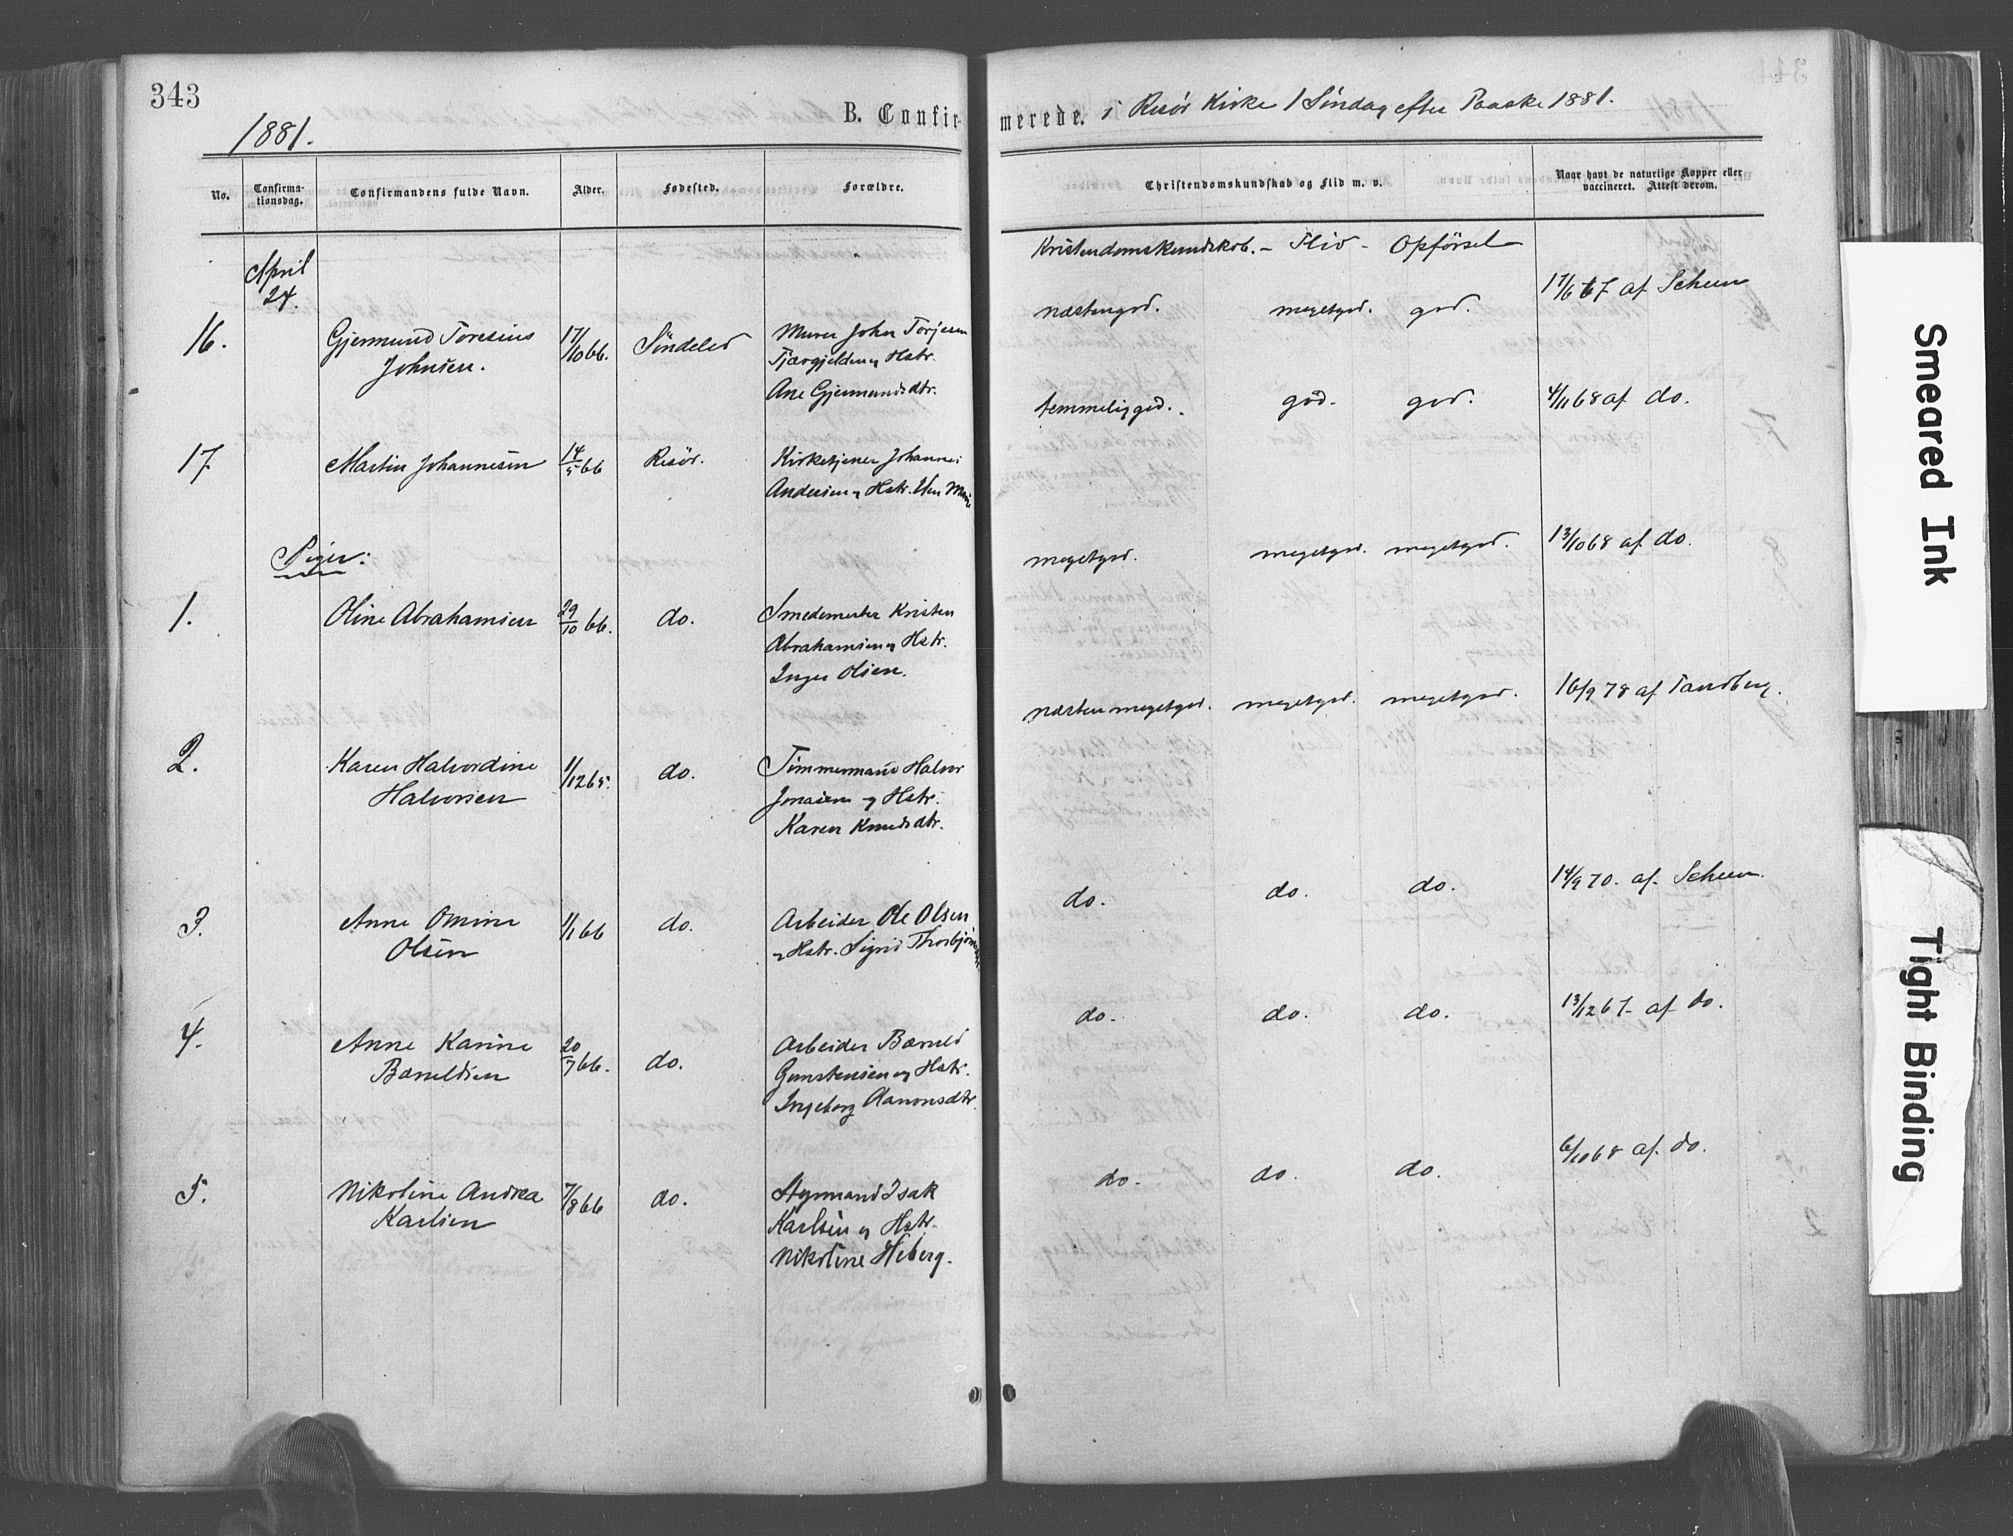 343
1881.
B. Confirmerede. i Risør Kirke 1 Søndag efter Paaske 1881.
No. Confirmationsdag. Confirmandens fulde Navn. Alder. Fødested. Forældre. Christendomskundskab og Flid m. v. Naar havt de naturlige Kopper eller vaccineret. Attest derom.
April
24.
Kristendomskundskab. - Flid - Opførsel
16. Gjermund Toresius
Johnsen.
17/10 66. Söndeled
Murer John Torjesen
Tjærgjelden og Hstr.
Ane Gjermundsdtr.
næstengod. megetgod. god. 17/6 67 af Scheen
17 Martin Johannesen 14/5 66 Risör.
Kirketjener Johannes
Andersen og Hstr.
temmeliggod. god. god. 4/11 68 af do.
Piger:
1. Oline Abrahamsen 29/10 66. do.
Smedemester Kristen
Abrahamsen og Hstr.
Inger Olsen.
megetgod. megetgod. megetgod. 13/10 68 af do.
2. Karen Halvordine
Halvorsen
1/12 65. do.
Tømmermand Halvor
Jonasen og Hstr.
Karen Knudsdtr.
næsten megetgod. megetgod. megetgod. 16/9 78 af Tandberg.
3. Anne Omine
Olsen
1/1 66 do.
Arbeider Ole Olsen
og Hstr. Sigrid Thorbjørnsdtr.
do. do. do. 14/9 70. af. Scheen
4. Anne Karine
Bæruldsen
20/7 66. do.
Arbeider Bæruld
Gunstensen og Hstr.
Ingeborg Aanonsdtr.
do. do. do. 13/12 67. af do.
5. Nikoline Andrea
Karlsen
7/8 66 do.
Styrmand Isak
Karlsen og Hstr.
Nikoline Heberg.
do. do. do. 6/10 68 af. do.
Smeared Ink
Tight Binding